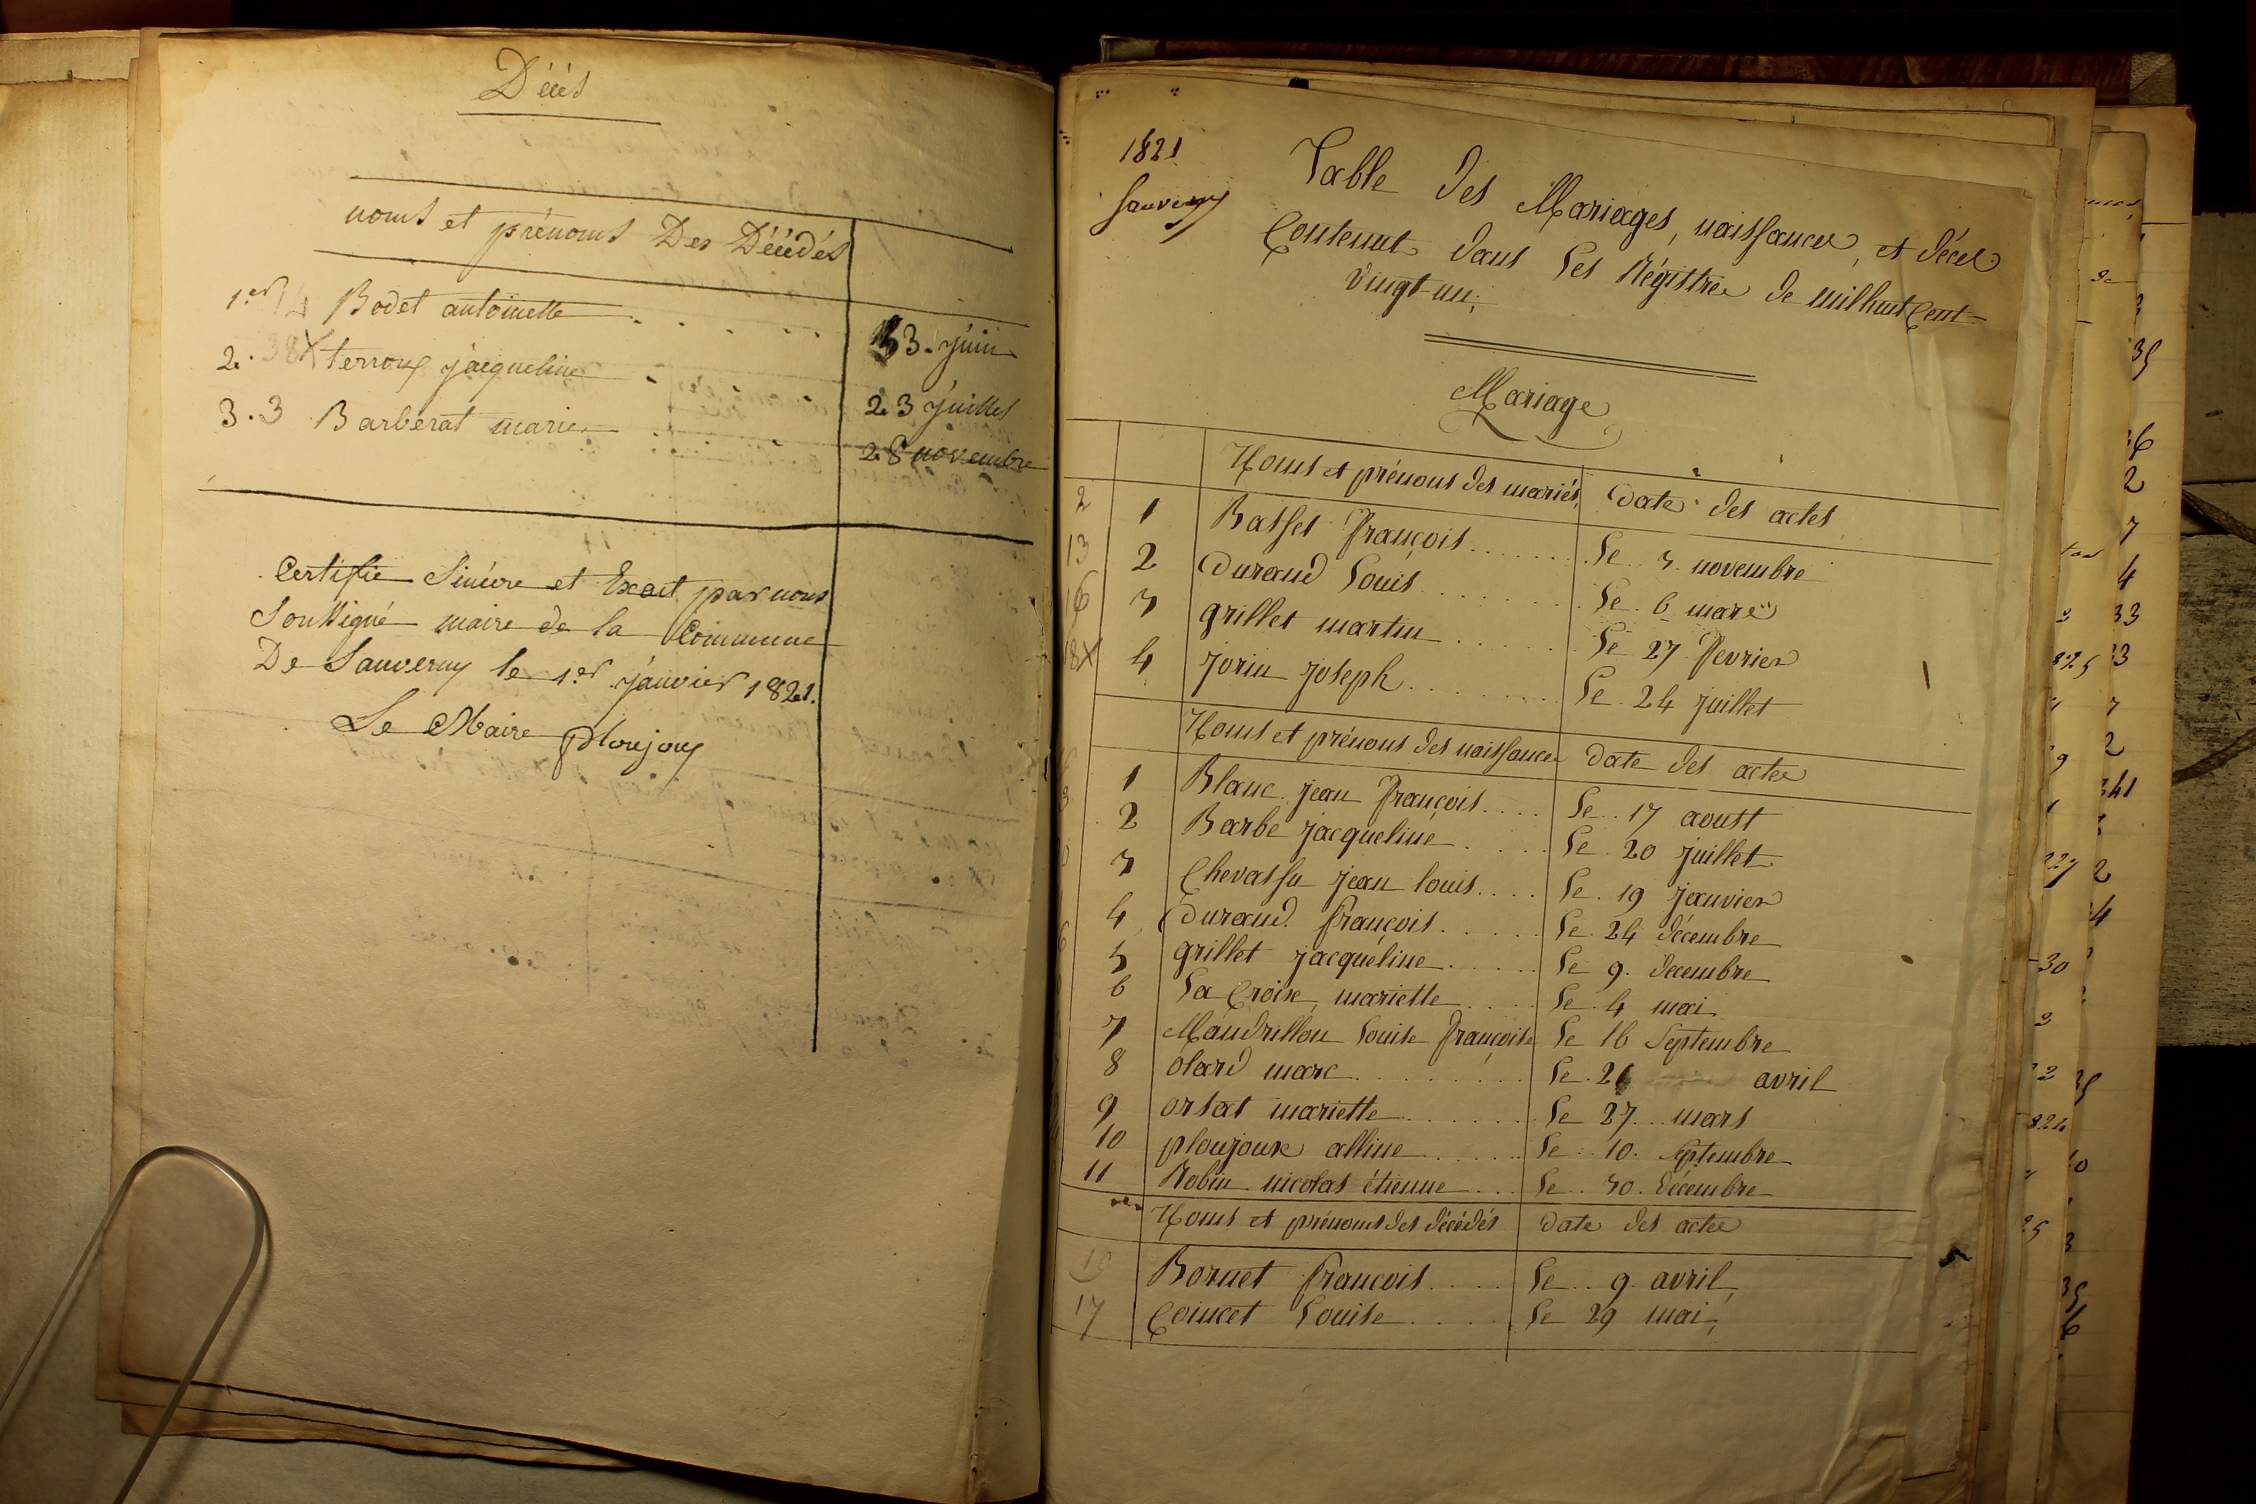 Décés
noms et prénoms Des Décédés
1.er 14 Bodet antoinette . . . . . 3. juin
2. 38X terroux jacqueline . 23 juillet
3. 3 Barberat marie 28 novembre
Certifié Sincère et Exact par nous
Soussigné maire de la Commune
De Sauverny le 1.er janvier 1821.
Le Maire ploujoux
1821
Sauverny
Table des Mariages, naissances, et décès
Contenut dans Les Régistres de mil huit Cent
Vingt-un;
Mariage
Noms et prénoms des mariés, Date des actes
2 1 Basset François ....... Le 3 novembre
13 2 Durand Louis ....... Le 6 mars
16 3 grillet martin ..... Le 27 Fevrier
18X 4 jorin joseph ....... Le 24 juillet
Noms et prénoms des naissances Date des actes
1 Blanc jean François .... Le 17 aoust
2 Barbe jacqueline .... Le 20 juillet
3 Chevassu jean louis .... Le 19 janvier
4 Durand François ..... Le 24 décembre
5 grillet jacqueline ..... Le 9. decembre
6 La Croise, mariette .... Le 4 mai
7 Maudrillon Louise Françoise Le 16 Septembre
8 olard marc ........ Le 26 avril
9 orsat mariette ....... Le 27 mars
10 ploujoux alline ...... Le 10. septembre
11 Robin nicolas étienne ... Le 30. décembre
Noms et prénoms des décédés Date des actes
15 Bornet François .... Le 9. avril,
17 Coincet Louise ..... Le 29 mai,